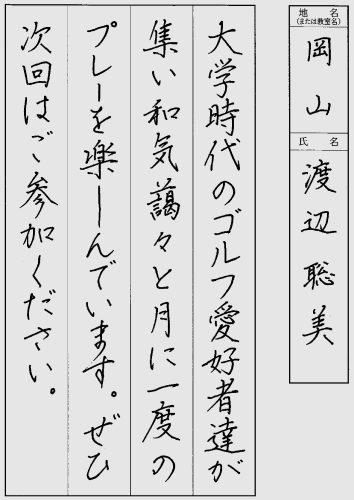 大学時代のゴルフ愛好者達が
集い和気藹々と月に一度の
プレーを楽しんでいます。ぜひ
次回はご参加ください。
地名
(または教室名)
岡山
氏名
渡辺聡美